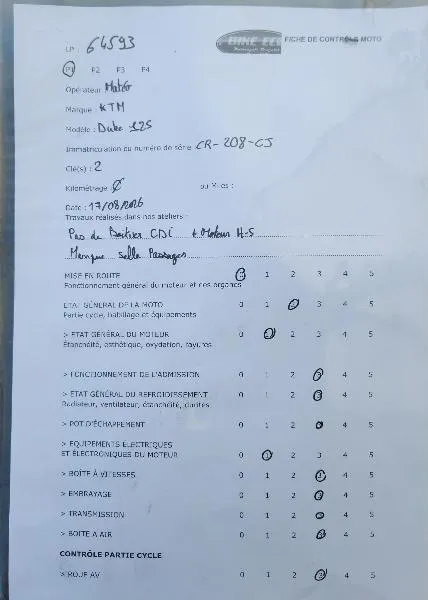 LP : 64593
BIKE ECO
FICHE DE CONTRÔLE MOTO
P1 P2 P3 P4
Opérateur : Matéo
Marque : KTM
Modèle : Duke 125
Immatriculation ou numéro de série : CR-208-CJ
Clé(s) : 2
Kilométrage : ou Miles :
Date : 17/08/2026
Travaux réalisés dans nos ateliers :
Pas de Boitier CDI + Moteur H-S
Manque selle Passager
MISE EN ROUTE 0 1 2 3 4 5
Fonctionnement général du moteur et des organes
ETAT GÉNÉRAL DE LA MOTO 0 1 2 3 4 5
Partie cycle, habillage et équipements
> ETAT GÉNÉRAL DU MOTEUR 0 1 2 3 4 5
Étanchéité, esthétique, oxydation, rayures
> FONCTIONNEMENT DE L'ADMISSION 0 1 2 3 4 5
> ETAT GÉNÉRAL DU REFROIDISSEMENT 0 1 2 3 4 5
Radiateur, ventilateur, étanchéité, durites
> POT D'ÉCHAPPEMENT 0 1 2 3 4 5
> EQUIPEMENTS ELECTRIQUES
ET ÉLECTRONIQUES DU MOTEUR 0 1 2 3 4 5
> BOÎTE À VITESSES 0 1 2 3 4 5
> EMBRAYAGE 0 1 2 3 4 5
> TRANSMISSION 0 1 2 3 4 5
> BOITE A AIR 0 1 2 3 4 5
CONTRÔLE PARTIE CYCLE
> ROUE AV 0 1 2 3 4 5